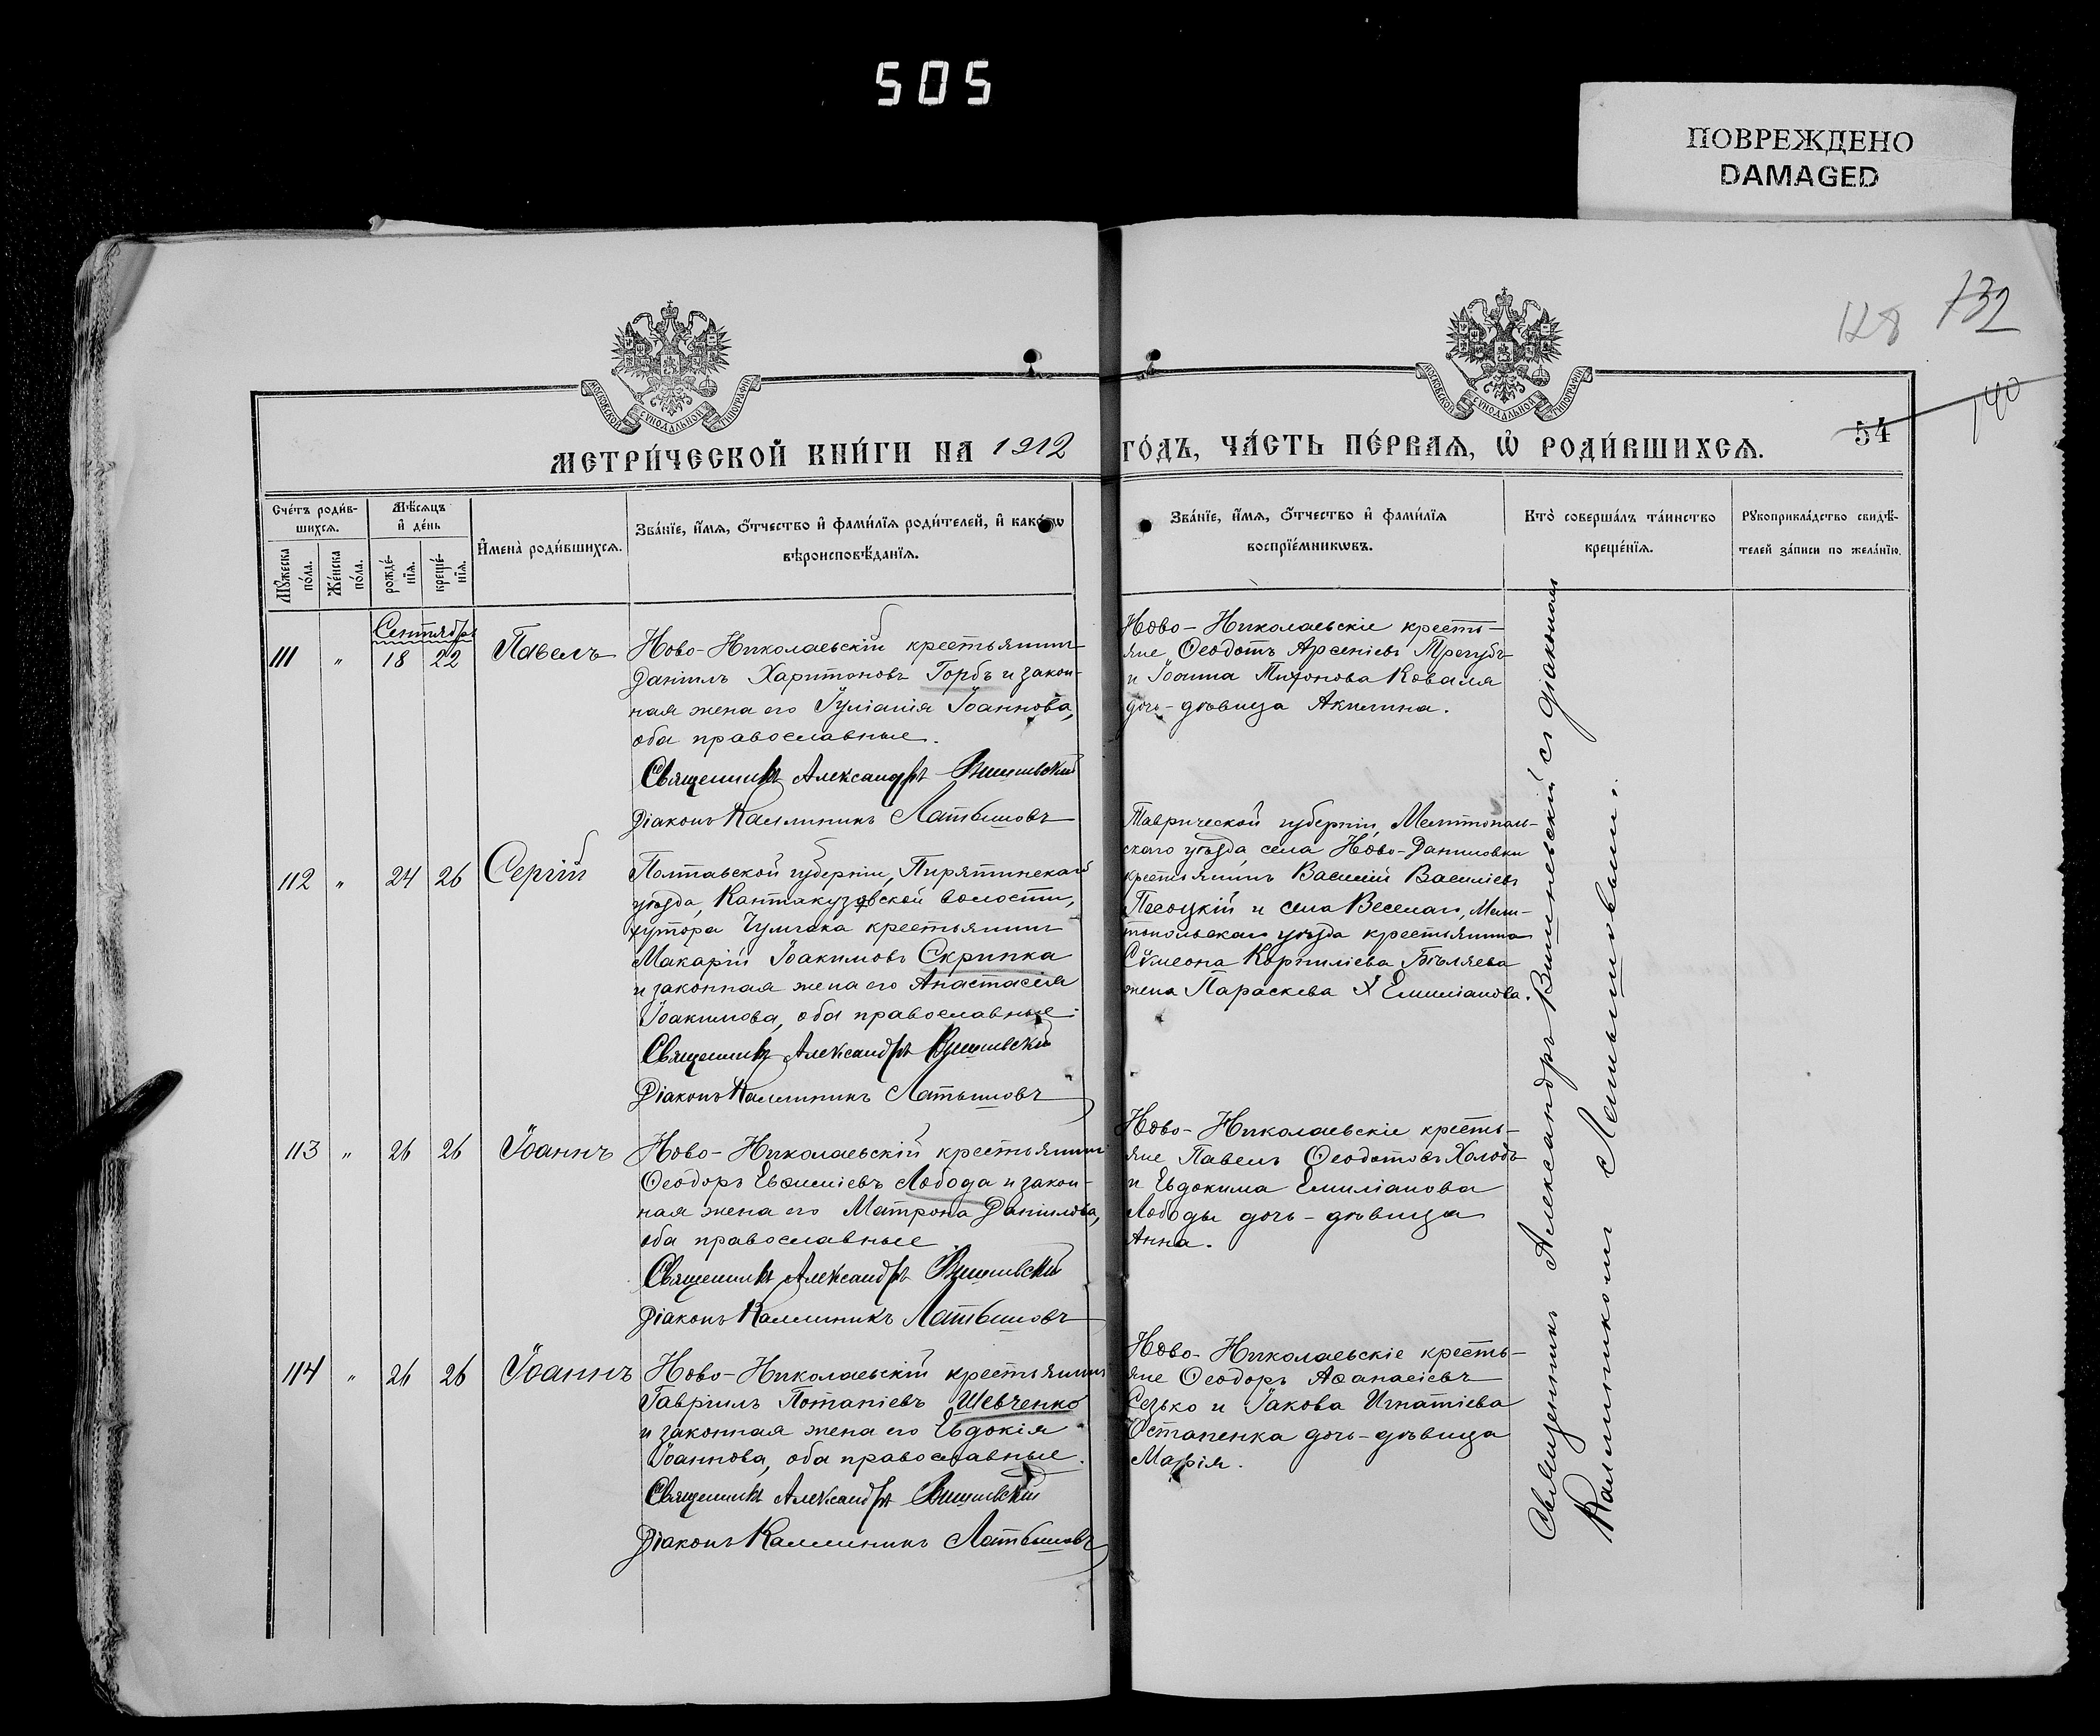 505
ПОВРЕЖДЕНО
DAMAGED
128
132
140
54
МОСКОВСКОЙ СѴНОДАЛЬНОЙ ТИПОГРАФІИ
МОСКОВСКОЙ СѴНОДАЛЬНОЙ ТИПОГРАФІИ
МЕТРИ́ЧЕСКОЙ КНИ́ГИ НА 1912
ГО́ДЪ, ЧА́СТЬ ПЕ́РВАЯ, Ѡ҆ РОДИ́ВШИХСЯ.
Сче́тъ роди́в-
шихсѧ.
Мꙋ́жеска
по́ла.
Же́нска
по́ла.
Мѣ́сѧцъ
и҆ де́нь
рожде́-
нїѧ.
креще́-
нїѧ.
И҆мена̀ роди́вшихсѧ.
Зва́нїе, и҆́мѧ, ѻ҆́тчество и҆ фами́лїѧ роди́телей, и҆ како́гѡ
вѣроисповѣ́данїѧ.
Зва́нїе, и҆́мѧ, ѻ҆́тчество и҆ фами́лїѧ
воспрїе́мникѡвъ.
Кто̀ соверша́лъ та́инство
креще́нїѧ.
Рꙋкоприкла́дство свидѣ́-
телей за́писи по жела́нїю.
Сентябрь
111 " 18 22 Павелъ
Ново-Николаевскій крестьянинъ
Даніилъ Харитоновъ Горбъ и закон-
ная жена его Іуліанія Іоаннова,
оба православные.
Священникъ Александръ Вишневскій
Діаконъ Каллиникъ Латышовъ
Ново-Николаевскіе кресть-
яне Ѳеодотъ Арсеніевъ Трегубъ
и Іоанна Тихонова Коваля
дочь-дѣвица Акилина.
112 " 24 26 Сергій
Полтавской губерніи, Пирятинскаго
уѣзда, Кантакузовской волости,
хутора Чумгака крестьянинъ
Макарій Іоакимовъ Скрипка
и законная жена его Анастасія
Іоакимова, оба православные.
Священникъ Александръ Вишневскій
Діаконъ Каллиникъ Латышовъ
Таврической губерніи, Мелитополь-
скаго уѣзда, села Ново-Даниловки
крестьянинъ Василій Василіевъ
Песоцкій и села Веселаго, Мели-
топольскаго уѣзда крестьянина
Сѵмеона Корниліева Бѣляева
жена Параскева Емиліанова.
113 " 26 26 Іоаннъ
Ново-Николаевскій крестьянинъ
Ѳеодоръ Евѳиміевъ Лобода и закон-
ная жена его Матрона Даніилова,
оба православные
Священникъ Александръ Вишневскій
Діаконъ Каллиникъ Латышовъ
Ново-Николаевскіе кресть-
яне Павелъ Ѳеодотовъ Холодъ
и Евдокима Емиліанова
Лободы дочь-дѣвица
Анна.
114 " 26 26 Іоаннъ
Ново-Николаевскій крестьянинъ
Гавріилъ Потапіевъ Шевченко
и законная жена его Евдокія
Іоаннова, оба православные.
Священникъ Александръ Вишневскій
Діаконъ Каллиникъ Латышовъ
Ново-Николаевскіе кресть-
яне Ѳеодоръ Аѳанасіевъ
Сезько и Іакова Игнатіева
Остапенка дочь-дѣвица
Марія.
Священникъ Александръ Вишневскій съ діакономъ
Каллиникомъ Латышовымъ.